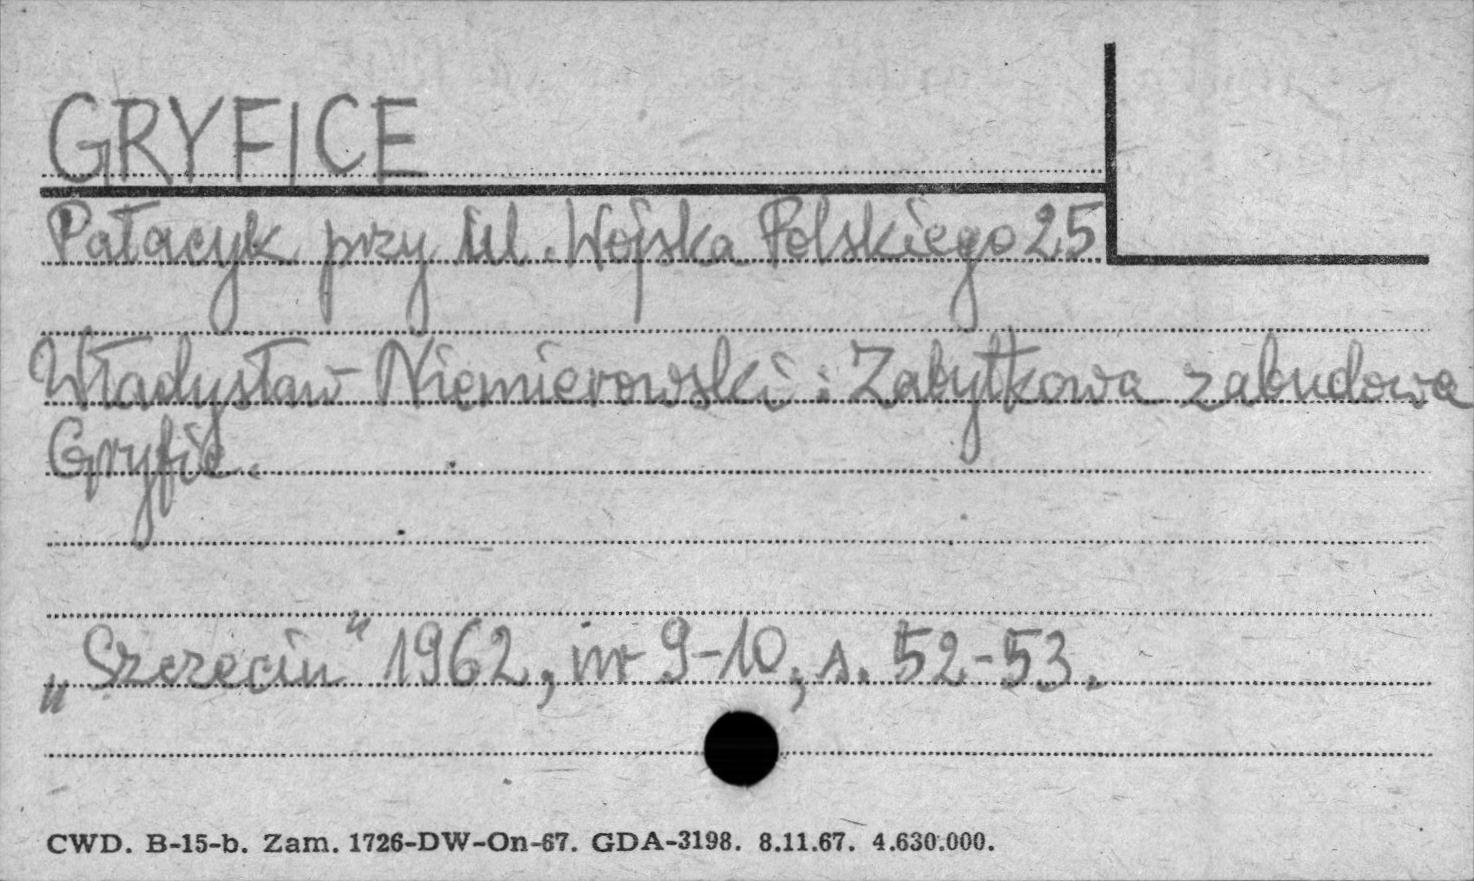 GRYFICE
Pałacyk przy ul. Wojska Polskiego 25
Władysław Niemierowski: Zabytkowa zabudowa
Gryfic.
„Szczecin" 1962, nr 9-10, s. 52-53.
CWD. B-15-b. Zam. 1726-DW-On-67. GDA-3198. 8.11.67. 4.630.000.